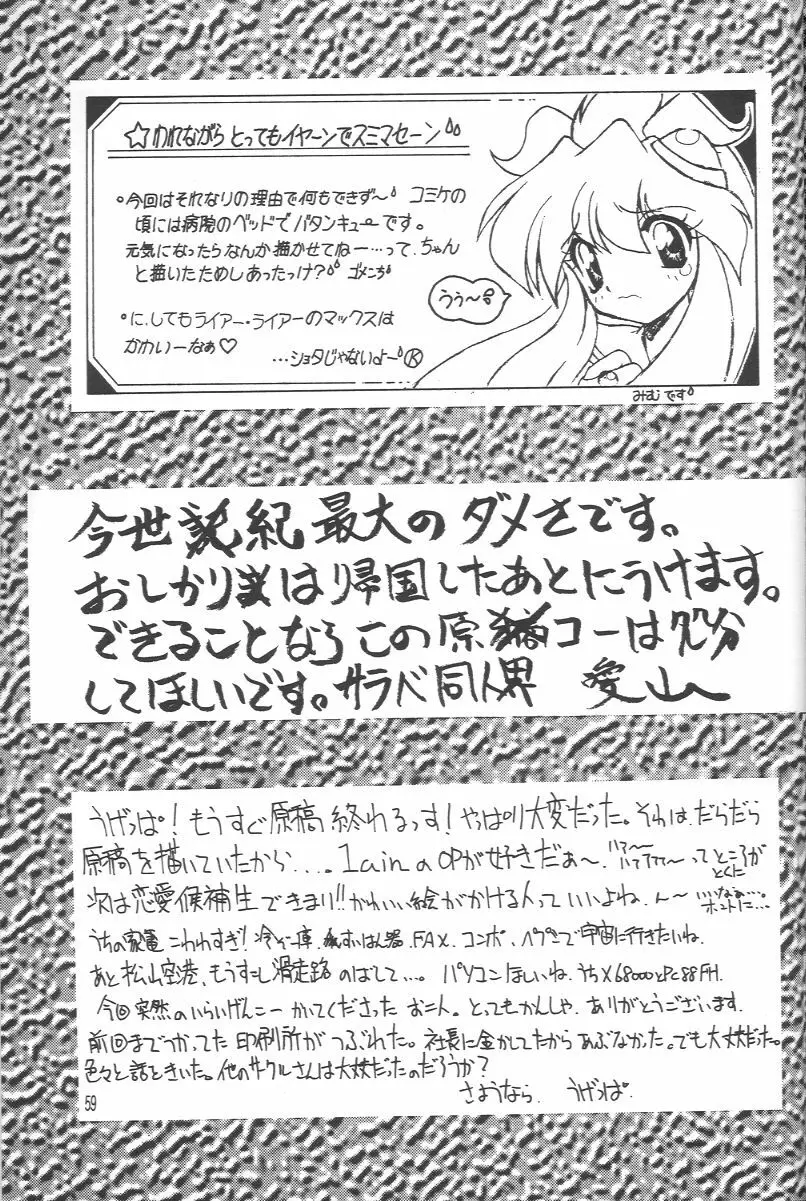 ☆われながら とってもイヤーンでスミマセーン
・今回はそれなりの理由で何もできず〜 コミケの
頃には病院のベッドでバタンキューです。
元気になったらなんか描かせてねー…って、ちゃん
と描いたためしあったっけ? ゴメンち
・に、してもライアー・ライアーのマックスは
かわいーなぁ♡
…ショタじゃないよー Ⓡ
うぅ〜
みむです
今世紀最大のダメさです。
おしかりは帰国したあとにうけます。
できることなら この原コーは処分
してほしいです。サラバ同人界 愛山
うげっぱ!もうすぐ原稿終れるっす!やっぱり大変だった。それは、だらだら
原稿を描いていたから....。lainのOPが好きだぁ〜. って ところが とくに
次は恋愛候補生できまり!!かわいい絵がかける人っていいよね. ん〜 いいなぁ…。ホントに…
うちの家電こわれすぎ!冷ぞー庫. すいはん器. FAX. コンポ、 で宇宙に行きたいね.
あと松山空港、もうすこし滑走路のばして…。 パソコンほしいね. うちX68000とPc88FH.
今回突然のいらいげんこー かいてくださった お二人。とってもかんしゃ. ありがとうございます.
前回までつかってた 印刷所がつぶれた。社長に金かしてたから あぶなかった。でも大丈夫だった。
色々と話をきいた。他のサークルさんは大丈夫だったのだろうか?
さようなら. うげっぱ.
59